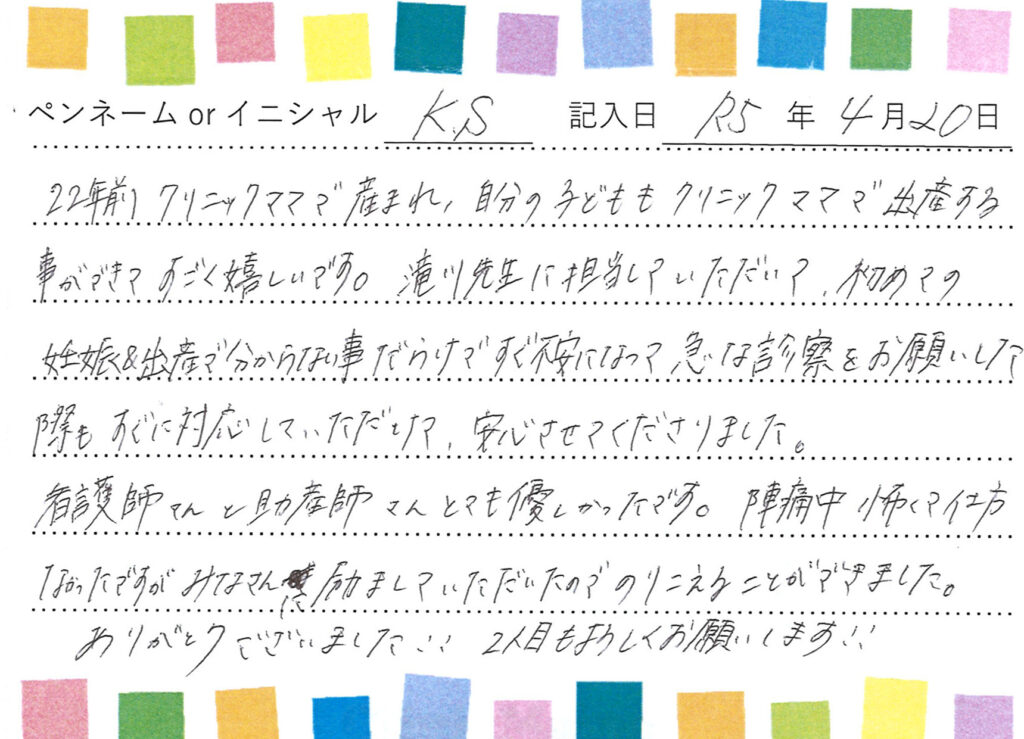 ペンネーム or イニシャル K.S 記入日 R5 年 4 月 20 日
22年前クリニックママで産まれ、自分の子どももクリニックママで出産する
事ができてすごく嬉しいです。滝川先生に担当していただいて、初めての
妊娠&出産で分からない事だらけですぐ不安になって急な診察をお願いした
際もすぐに対応していただけて、安心させてくださりました。
看護師さんと助産師さんとても優しかったです。陣痛中怖くて仕方
なかったですがみなさんに励ましていただいたのでのりこえることができました。
ありがとうございました!! 2人目もよろしくお願いします!!